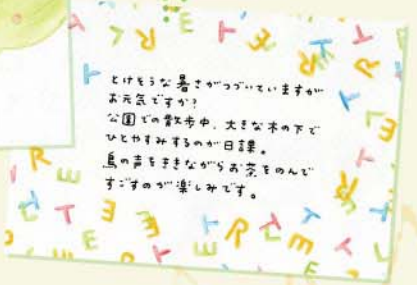 とけそうな暑さがつづいていますが
お元気ですか?
公園での散歩中、大きな木の下で
ひとやすみするのが日課。
鳥の声をききながらお茶をのんで
すごすのが楽しみです。